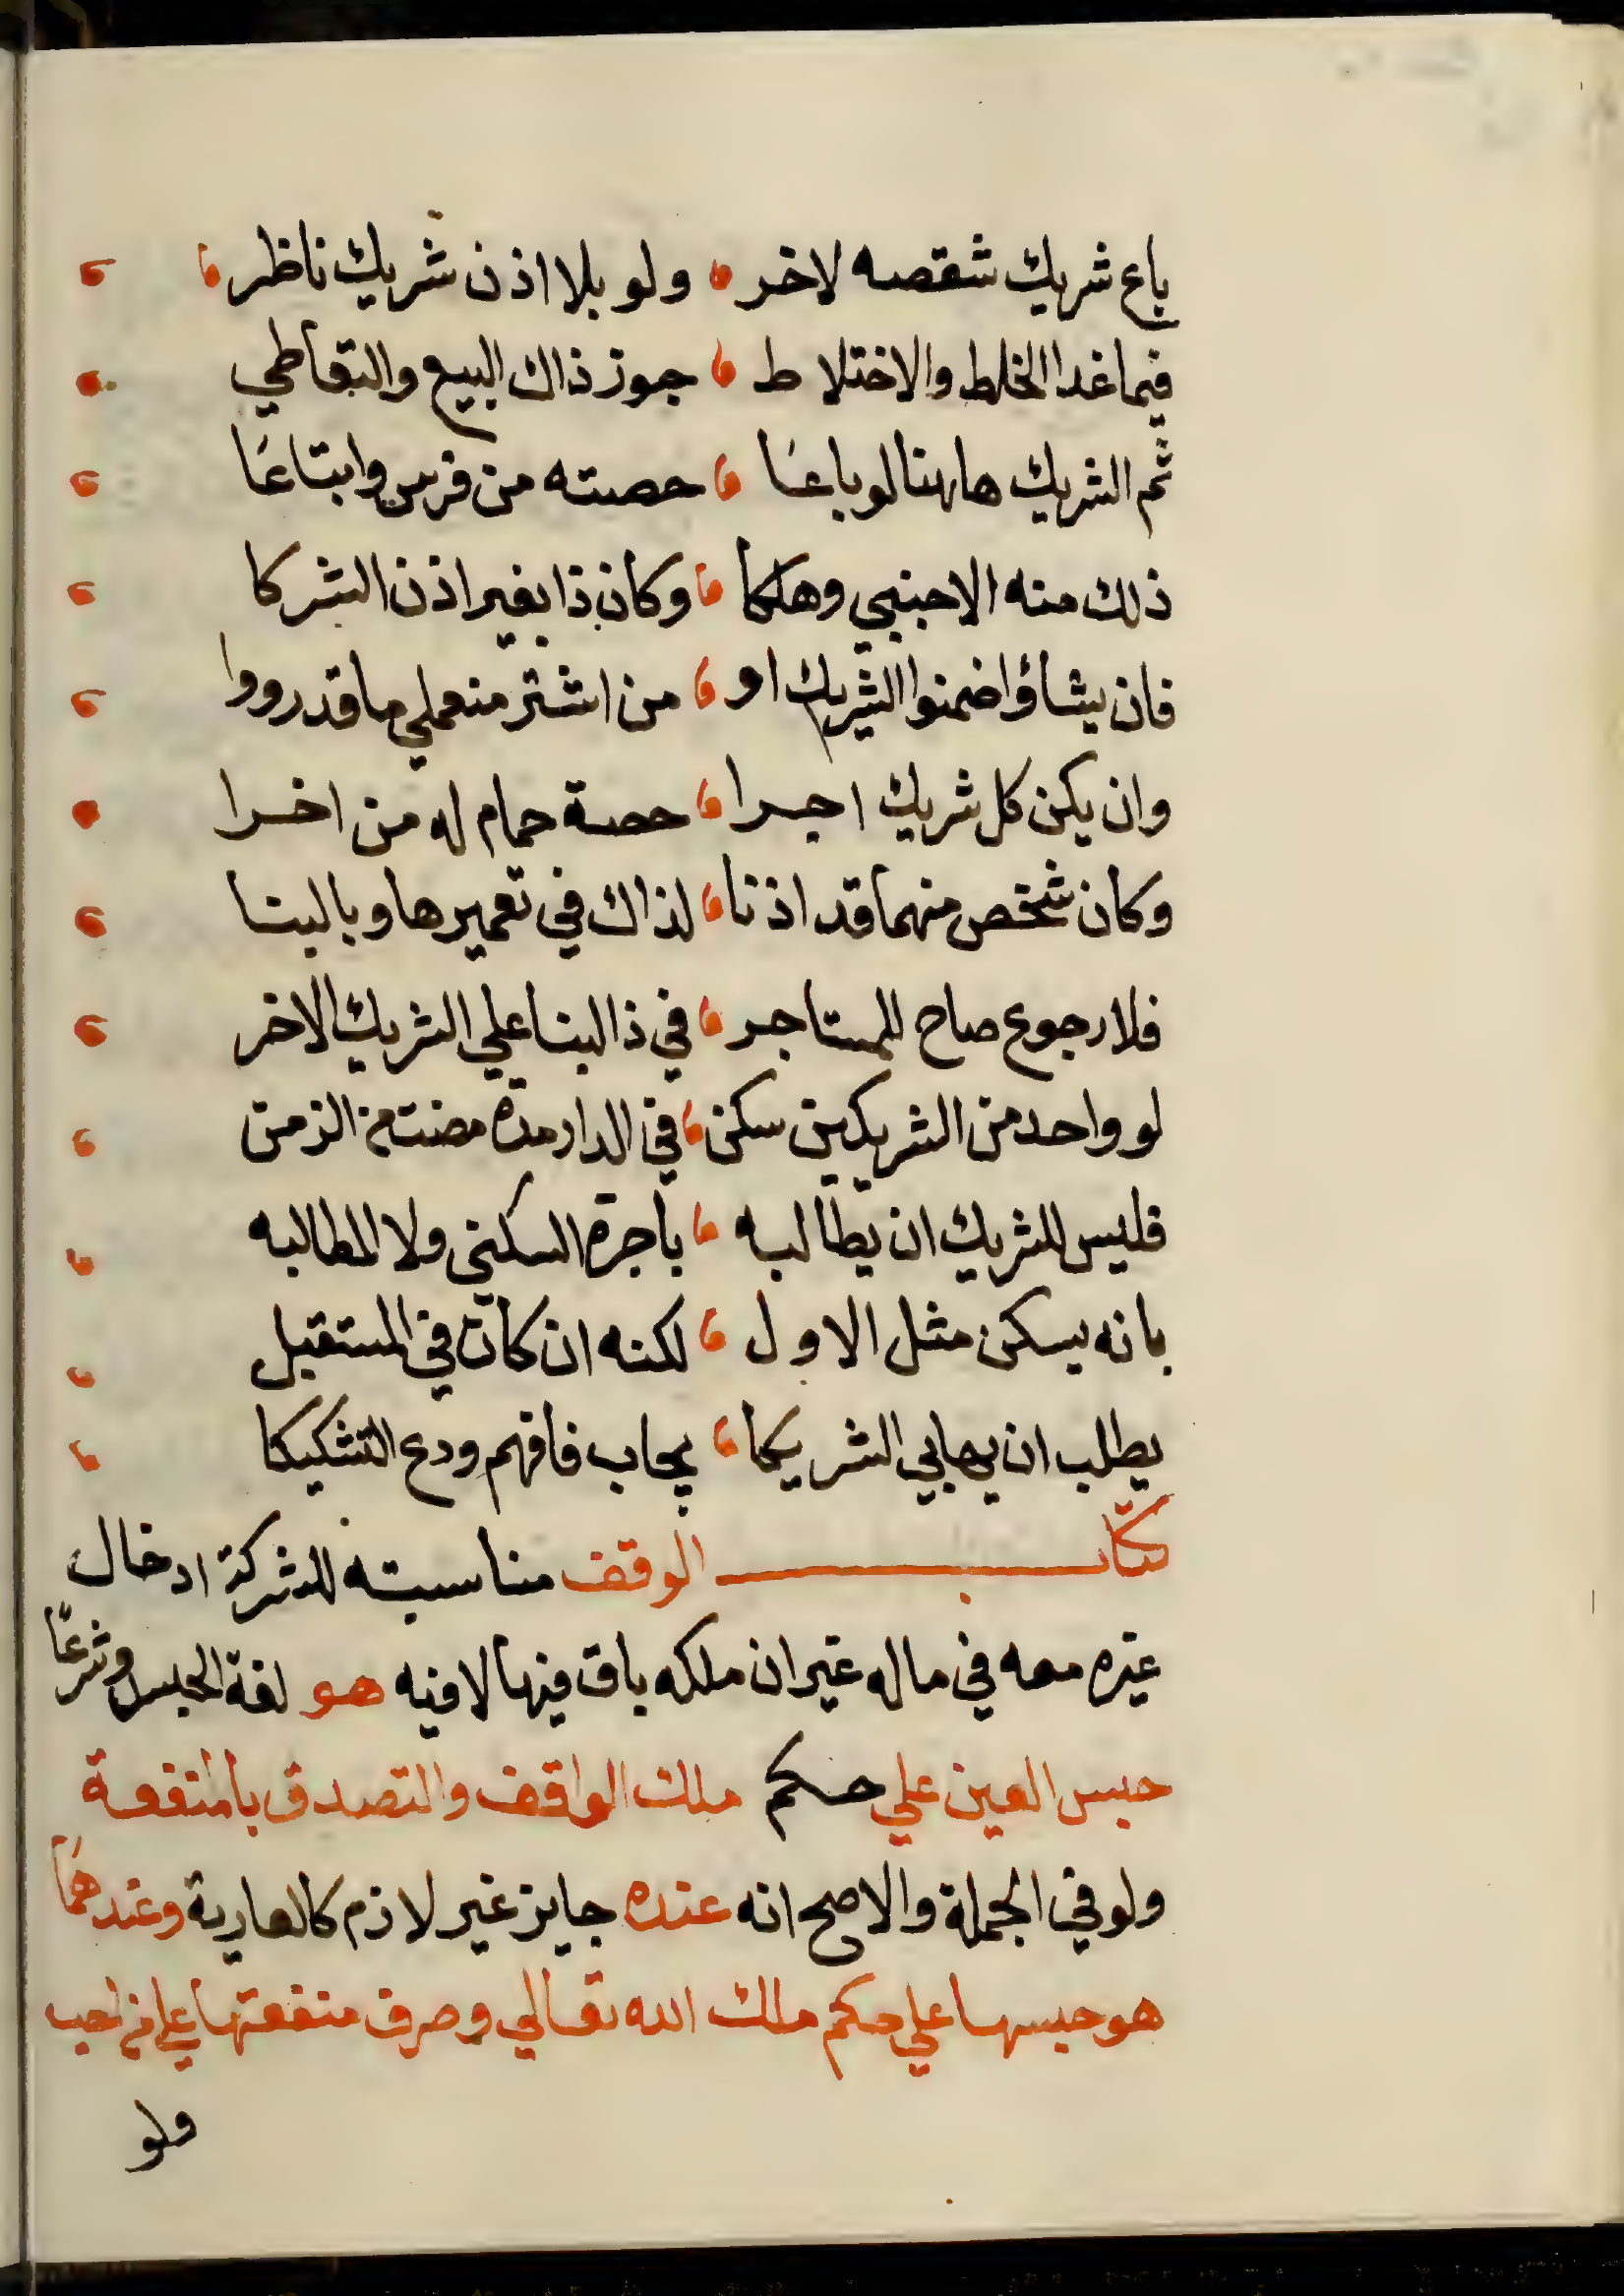 باع شريك شقصه لاخر ، ولو بلا اذن شريك ناظر ،
فيما غدا الخلط والاختلاط ، جوز ذاك البيع والتعاطي
ثم الشريك هاهنا لو باعا ، حصته من فرس وابتاعا
ذلك منه الاجنبي وهلكا ، وكان ذا بغير اذن الشركا
فان يشاؤا ضمنوا الشريك او ، من اشتر منه علي ما قد رووا
وان يكن كل شريك اجرا ، حصة حمام له من اخرا
وكان شخص منهما قد اذنا ، لذاك في تعميرها وبالبنا
فلا رجوع صاح للمستاجر ، في ذا البنا علي الشريك الاخر
لو واحد من الشريكين سكن ، في الدار مدة مضت من الزمن
فليس للشريك ان يطالبه ، باجرة السكني ولا المطالبه
بانه يسكن مثل الاول ، لكنه ان كان في المستقبل
يطلب ان يهايي الشريكا ، يجاب فافهم ودع التشكيكا
كتاب الوقف مناسبته للشركة ادخال
غيره معه في ماله غير ان ملكه باق فيها لا فيه هو لغة الحبس وشرعًا
حبس العين علي حكم ملك الواقف والتصدق بالمنفعة
ولو في الجملة والاصح انه عنده جايز غير لازم كالعارية وعندهما
هو حبسها علي حكم ملك الله تعالي وصرف منفعتها علي من احب
ولو